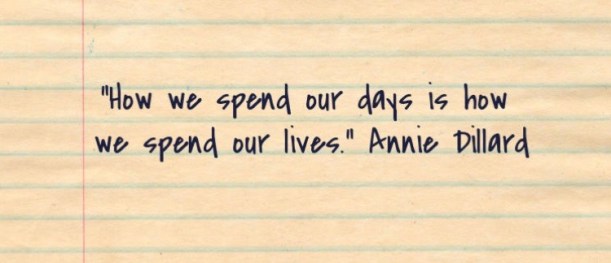 "How we spend our days is how
we spend our lives." Annie Dillard